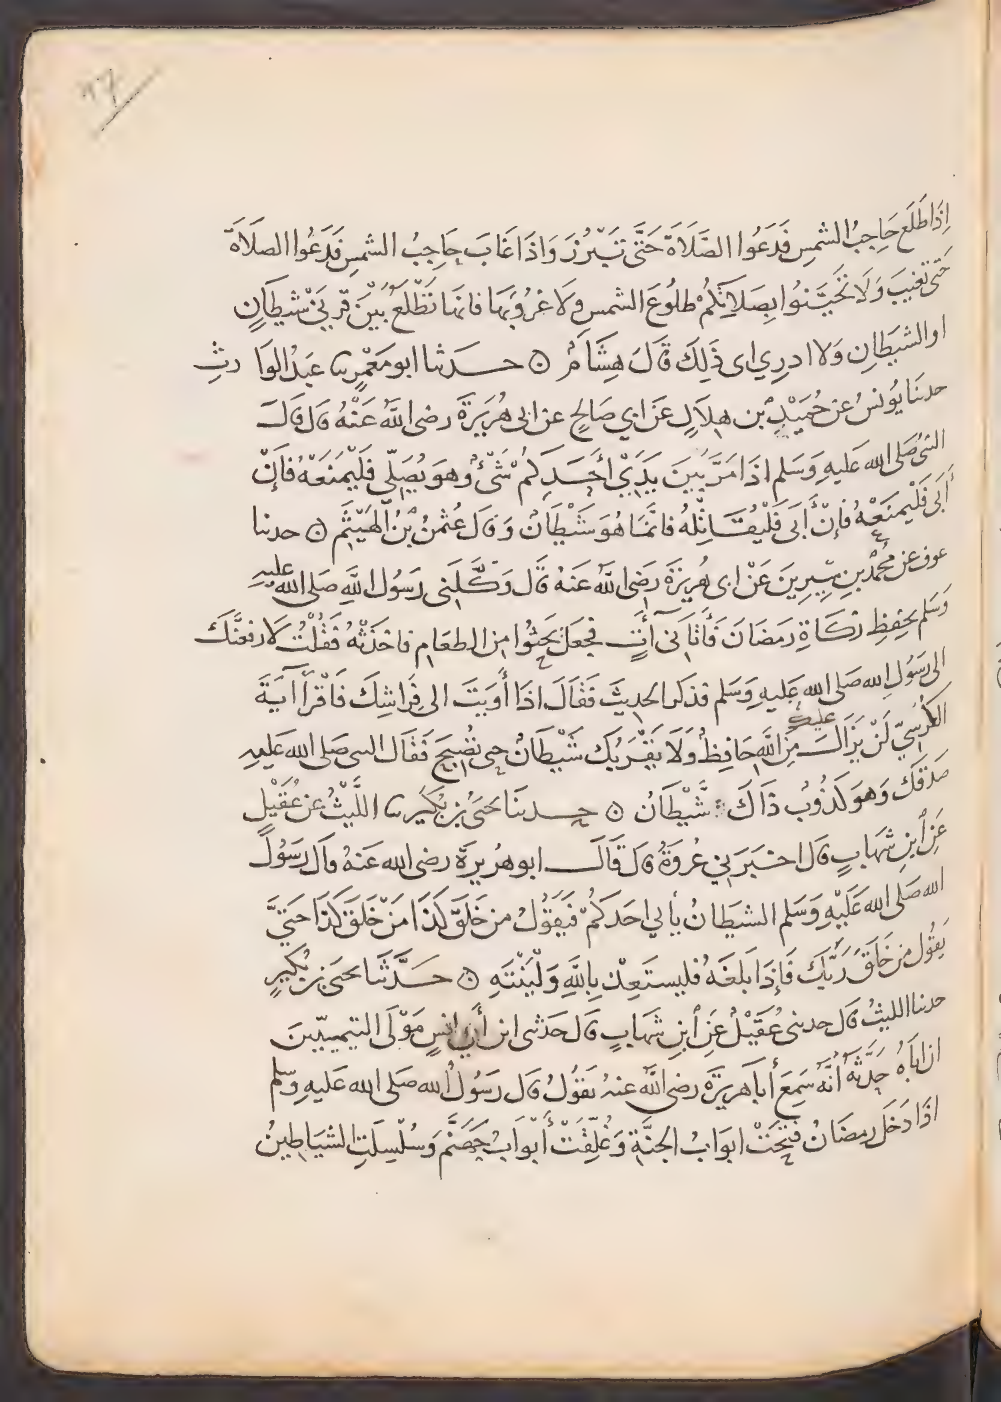 ٩٦
إِذَا طَلَعَ حَاجِبُ الشمسِ فَدَعُوا الصَّلَاةَ حَتَّى تَبْرُزَ وَاذَا غَابَ حَاجِبُ الشمسِ فَدَعُوا الصَلَاةَ
حَتَّى تَغِيبَ وَلَا تَحَيَّنُوا بِصَلَاتِكُمْ طلُوعَ الشمسِ وَلَا غرُوبَهَا فانهَا تَطْلَعُ بَيْنَ قَرْنَيْ شَيطَانٍ
او الشيَطَانِ وَلا ادرِي اى ذَلِكَ قَالَ هِشَامٌ ۞ حدثنا ابو مَعْمَرٍ نا عبدُ الوَارِثِ
حدثنَا يُونسُ عن حُمَيْدِ بن هِلَالٍ عَن ابي صَالحٍ عن ابى هُرَيرَةَ رضى اللَّهُ عَنْهُ قال قالَ
النبىُّ صَلى الله عَليهِ وَسَلم اذَا مَرَّ بَيْنَ يَدَيْ أَحَدِكُمْ شَيْءٌ وَهوَ يُصَلّى فَلْيَمْنَعْهُ فَإِنْ
أَبَى فَلْيمنَعْهُ فَإِنْ أَبَى فَلْيُقَاتِلْهُ فَانَّمَا هُوَ شَيْطَانٌ وَقَال عُثْمنُ بْنُ الْهَيْثَمِ ۞ حدثنا
عوف عن مُحمّد بنِ سِيرِينَ عَنْ ابى هُرَيرَةَ رَضى اللَّهُ عَنهُ قَال وَكَّلَنِى رَسُولُ اللَّهِ صَلى الله عليه
وَسَلم بحِفظِ زكَاةِ رَمَضَانَ فَأَتَانى آتٍ فجعَلَ يَحثُوا مِنَ الطعَامِ فاخَذتُهُ فَقُلْتُ لَارفَعَنَّكَ
الى رَسُولِ الله صَلى الله عَليهِ وَسَلم فذكَر الحديثَ فَقَالَ اذَا أَوَيتَ الى فِرَاشِكَ فَاقْرَأ آيَةَ
الكُرْسِيّ لَنْ يَزَالَ عليك مِنَ اللَّهِ حَافِظٌ وَلَا يَقْرَبُكَ شَيْطَانٌ حتى تُصْبِحَ فَقَال النبى صَلى الله عَليهِ
صَدَقَكَ وَهوَ كَذُوبٌ ذَاكَ شَّيْطَانٌ ۞ حدثنَا يَحيَى بن بُكَيرٍ نا اللَّيْثُ عن عُقَيْلٍ
عَنِ ابنِ شِهَابٍ قال اخبَرَنِي عُروَةُ قال قَالَ ابو هُرَيرةَ رضى الله عَنهُ قال رَسُولُ
الله صَلى الله عَلَيْهِ وَسَلم الشيَطَانُ يأتي احَدَكُمْ فَيَقُولُ من خَلَقَ كَذَا مَنْ خَلَقَ كذَا حَتَّى
يَقُول من خَلَقَ رَبَّكَ فَإِذَا بَلغَهُ فَليستَعِذْ بِاللَّهِ وَلْيَنْتَهِ ۞ حَدَّثنَا يحيَى بن بُكَيرٍ
حدثنا الليثُ قال حدثنى عُقَيْلٌ عَنِ ابنِ شِهَابٍ قال حَدثنى ابن أَبِي انَسٍ مَوْلَى التيمِيِّينَ
ان ابَاهُ حَدَّثَهُ أَنَّهُ سَمِعَ أَبَا هرَيرَةَ رضى اللَّه عَنهُ يَقُولُ قال رَسُولُ الله صَلى الله عَليهِ وسَلم
اذَا دَخَلَ رمضَانُ فُتِّحَتْ ابوَابُ الجنَّةِ وَغُلِّقَتْ أَبْوَابُ جَهَنَّمَ وَسُلْسِلَتِ الشيَاطِينُ